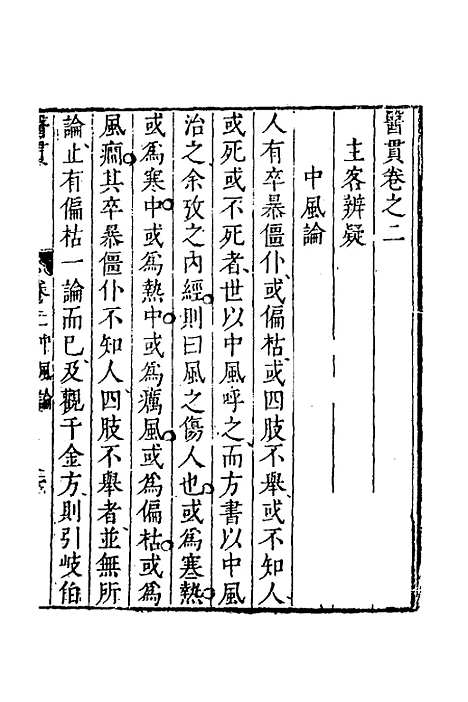 醫貫卷之二
主客辨疑
中風論
人有卒暴僵仆或偏枯或四肢不舉或不知人
或死或不死者世以中風呼之而方書以中風
治之余攷之內經則曰風之傷人也或為寒熱
或為寒中或為熱中或為癘風或為偏枯或為
風痱其卒暴僵仆不知人四肢不舉者並無所
論止有偏枯一論而已及觀千金方則引岐伯
醫貫 卷二中風論